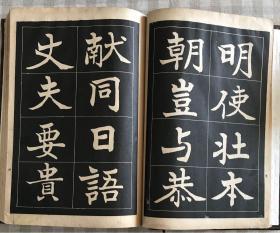 明使壮本
朝豈与恭
献同日語
丈夫要貴